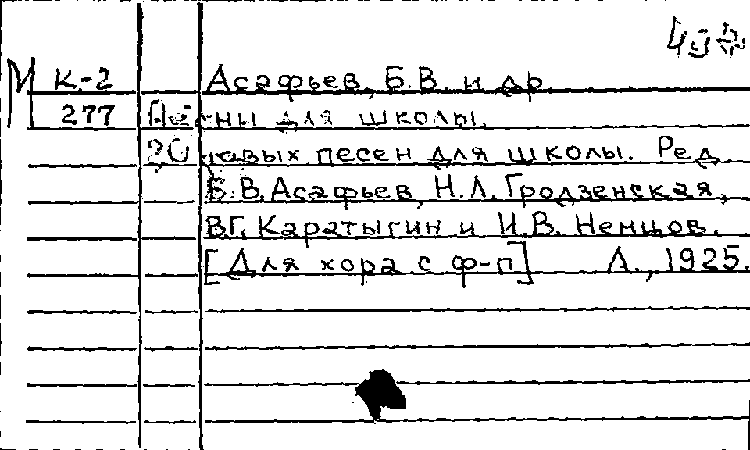 М К-2 Асафьев, Б.В. и др.
277 Песни для школы.
20 новых песен для школы. Ред.
Б.В. Асафьев, Н.Л. Гродзенская,
В.Г. Каратыгин и И.В. Немцов.
[Для хора с ф-п] Л., 1925.